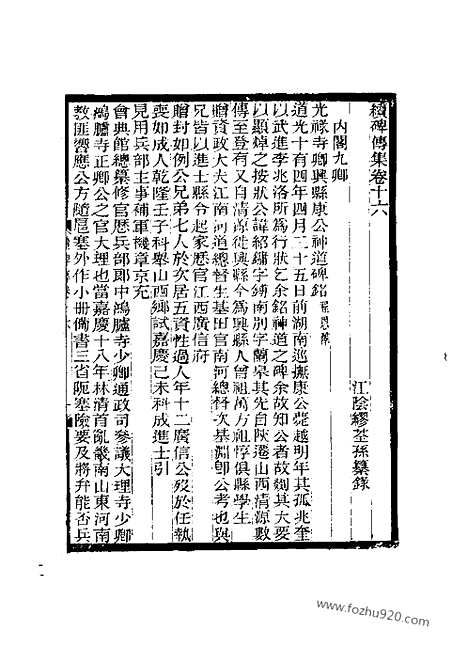 續碑傳集卷十六
江陰繆荃孫纂錄
內閣九卿
光祿寺卿興縣康公神道碑銘
道光十有四年四月三十五日前湖南巡撫康公薨越明年其孤兆奎
以武進李兆洛所爲行狀乞余銘神道之碑余故知公者故劖其大要
以顯焯之按狀公諱紹鏞字鎛南別字蘭皋其先自陝遷山西清源數
傳至登有又自清源徙興縣今爲興縣人曾祖萬方祖惇俱縣學生
贈資政大夫江南河道總督生基田官南河總督次基淵卽公考也與
兄皆以進士縣令起家歷官江西廣信府
贈封如例公兄弟七人於次居五資性過人年十二廣信公歿於任執
喪如成人乾隆壬子科舉山西鄉試嘉慶己未科成進士引
見用兵部主事補軍機章京充
會典館總纂修官歷兵部郎中鴻臚寺少卿通政司參議大理寺少卿
鴻臚寺正卿公之官大理也當嘉慶十八年林清首亂畿南山東河南
敎匪響應公方隨扈塞外作小冊備書三省阨塞險要及將弁能否兵
www.fozhu920.com